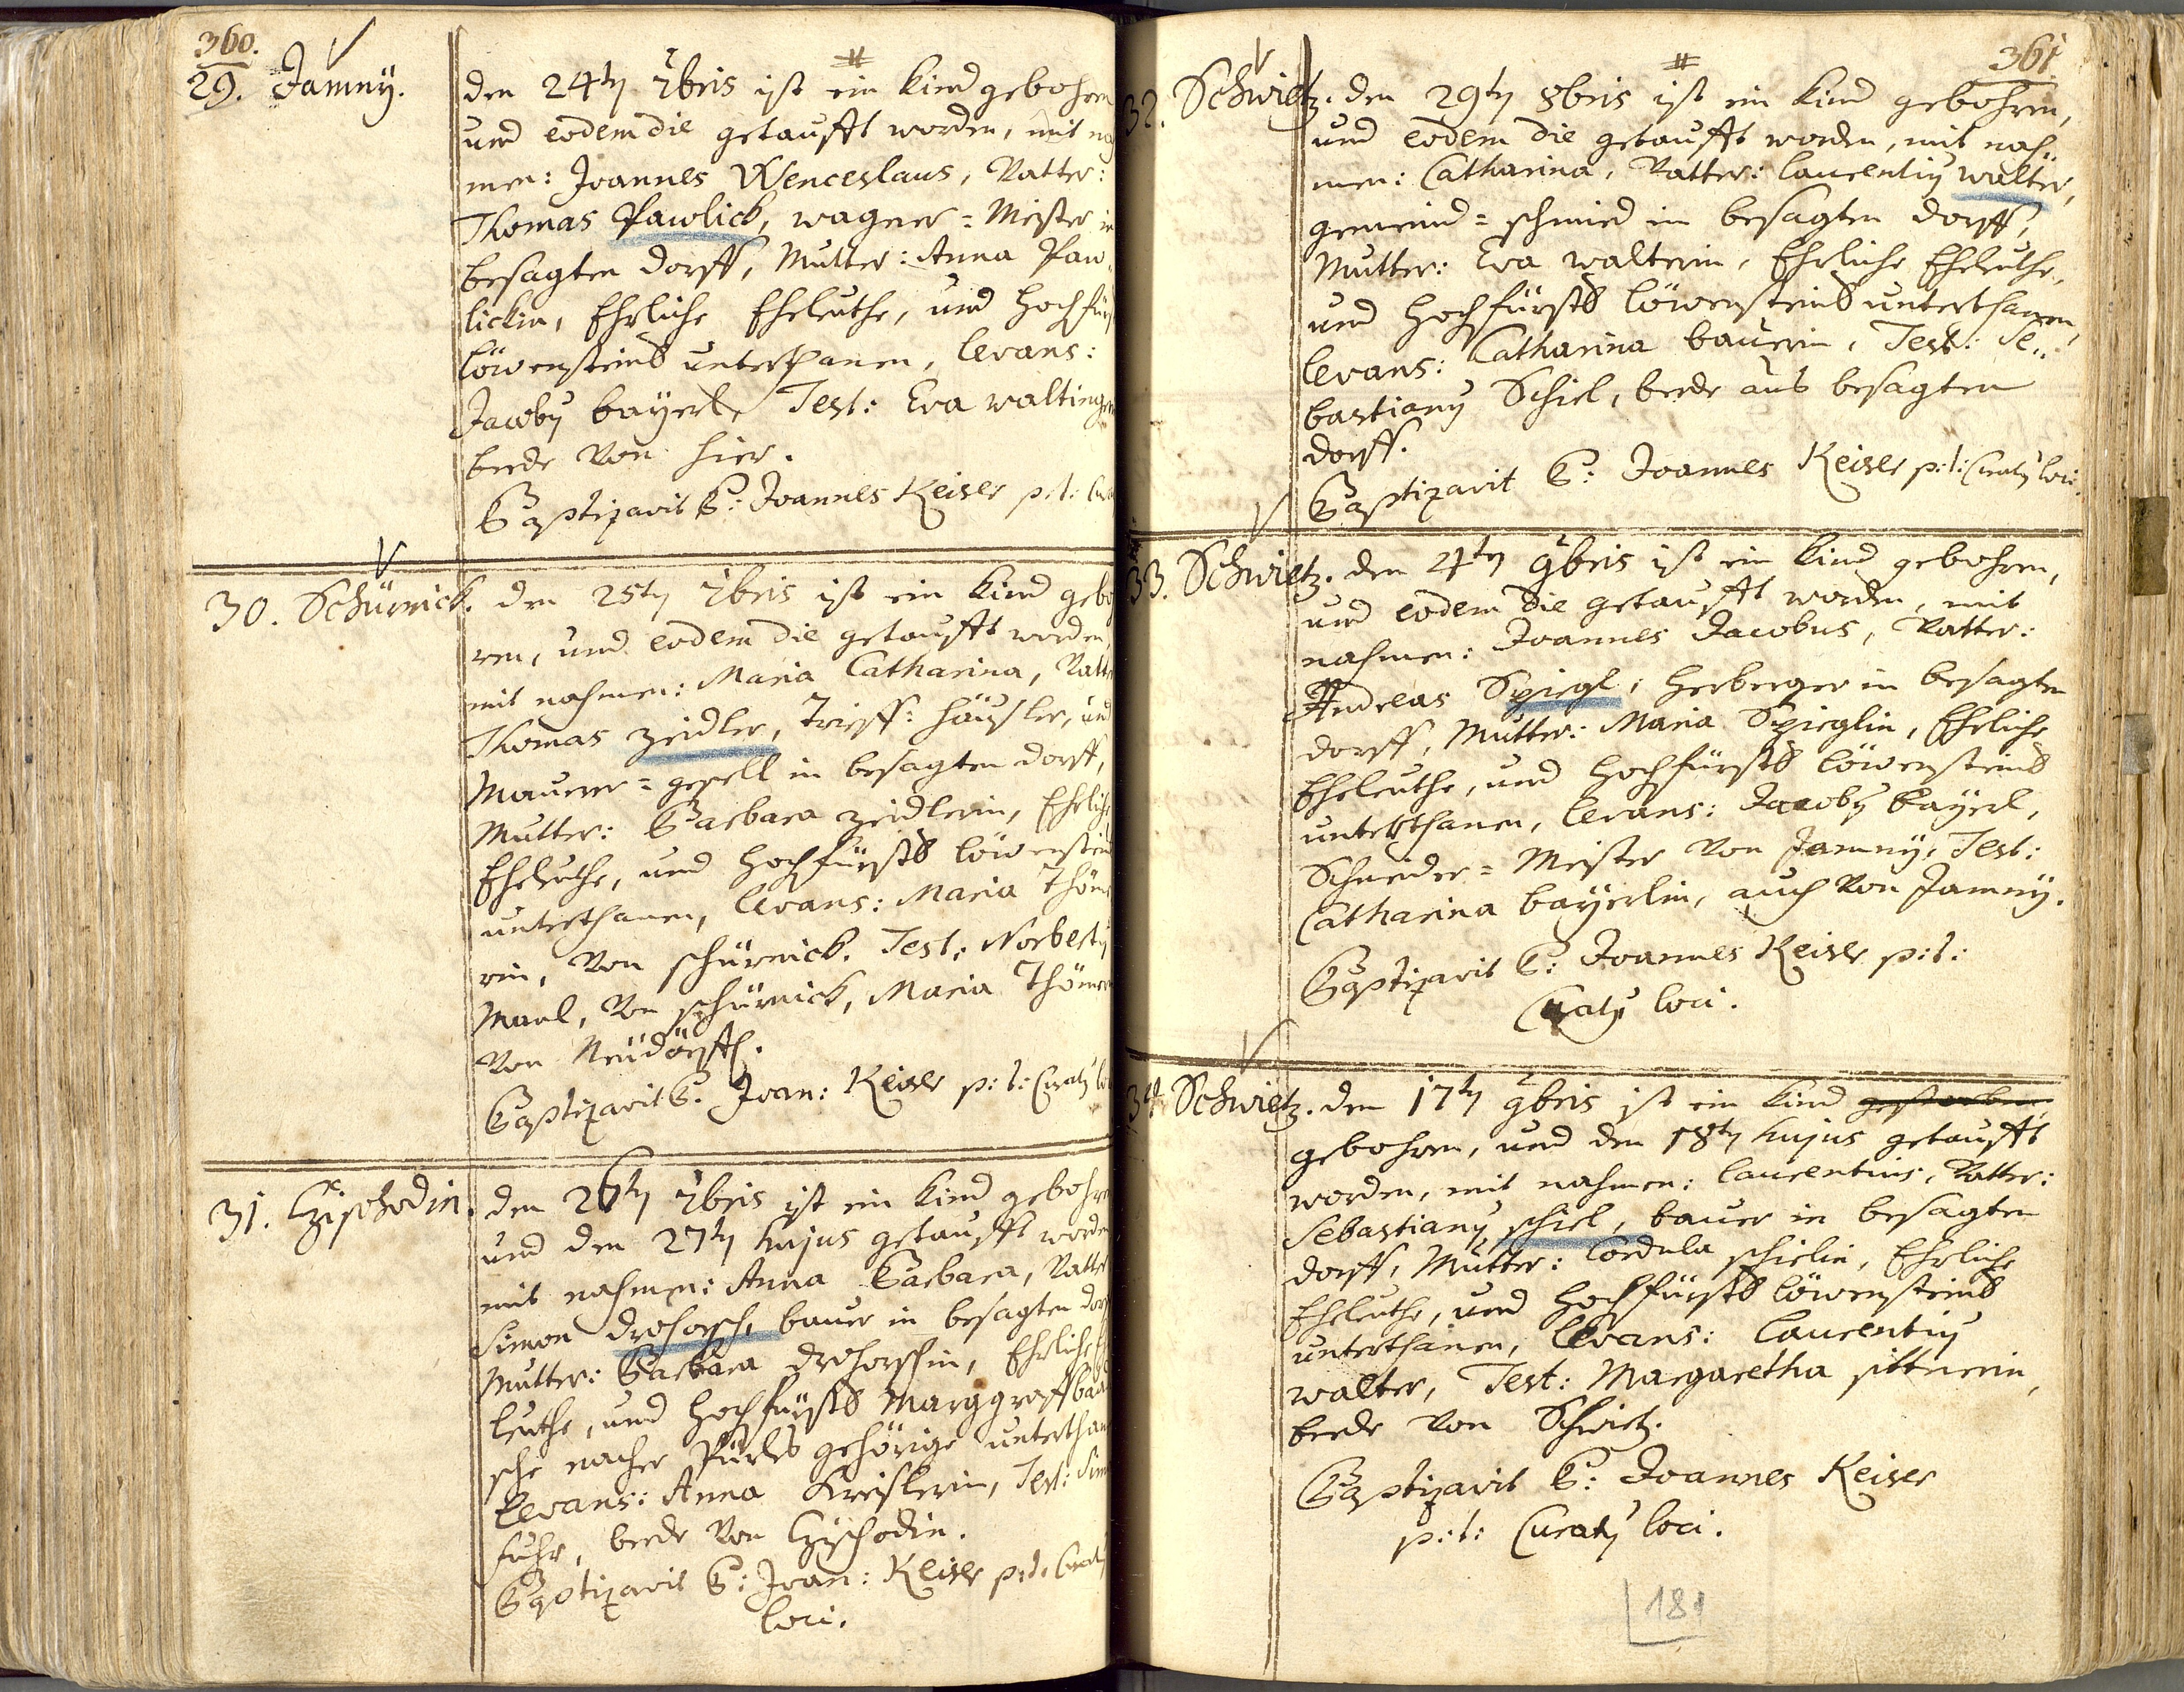 360.
29. Jamnÿ.
den 24tn 7bris ist ein Kind gebohren
und eodem die getaufft worden, mit
men: Joannes Wenceslaus, Vatter:
Thomas Pawlick, wagner = Meister in
besagten dorff, Mutter: Anna Paw„
lickin, Ehrliche Eheleuthe, und Hochfürst
löwensteins unterthanen, levans:
Jacobÿ baÿerl, Test: Eva
beede von hier.
Baptizavit P: Joannes Keiser p: t:
30. Schürnick.
den 25tn 7bris ist ein Kind gebo
ren, und eodem die getaufft worden,
mit nahmen: Maria Catharina, Vatter
Thomas Zeidler, häusler, und
Maurer = gesell in besagten dorff,
Mutter: Barbara Zeidlerin, Ehrliche
Eheleuthe, und Hochfürsts löwensteins
unterthanen, levans: Maria
rin, von schürnick. Test: Norbertÿ
Manl, von schürnick, Maria
von Neüdörffl.
Baptizavit P. Joan: Keiser p: t: Curatÿ loci
31. Czischodin.
den 26tn 7bris ist ein Kind gebohren
und den 27tn hujus getaufft worden
mit nahmen: Anna Barbara, Vatter
Simon drohorsch, bauer in besagten dorff
Mutter: Barbara drohorschin, Ehrliche
leuthe, und Hochfürsts Marggraff
sche nacher Pürles gehörige unterthanen
levans: Anna Kreislerin, Test:
fuhr, beede von Czischodin.
Baptizavit P: Joan: Keiser p: t: Curatÿ
loci.
361
32. Schwietz.
den 29tn 8bris ist ein Kind gebohren,
und eodem die getaufft worden, mit nah„
men: Catharina, Vatter: laurentiÿ walter,
gemeind = schmied in besagten dorff,
Mutter: Eva walterin, Ehrliche Eheleuthe,
und Hochfürsts löwensteins unterthanen,
levans: Catharina bauerin, Test: Se„
bastianÿ Schiel, beede aus besagten
dorff.
Baptizavit P: Joannes Keiser p: t: Curatÿ loci.
33. Schwietz.
den 4tn 9bris ist ein Kind gebohren,
und eodem die getaufft worden, mit
nahmen: Joannes Jacobus, Vatter:
Andreas Spiegl, Herberger in besagten
dorff, Mutter: Maria Spieglin, Ehrliche
Eheleuthe, und Hochfürsts löwensteins
unterthanen, levans: Jacobÿ baÿerl,
Schneider = Meister von Jamnÿ, Test:
Catharina baÿerlin, auch von Jamnÿ.
Baptizavit P: Joannes Keiser p: t:
Curatÿ loci.
34. Schwietz.
den 17tn 9bris ist ein Kind gestorben
gebohren, und den 18tn hujus getaufft
worden, mit nahmen: laurentius, Vatter:
Sebastianÿ schiel, bauer in besagten
dorff, Mutter: Cordula schielin, Ehrliche
Eheleuthe, und Hochfürsts löwensteins
unterthanen, levans: laurentiÿ
walter, Test: Margaretha sittnerin,
beede von Schwietz.
Baptizavit P: Joannes Keiser
p: t: Curatÿ loci.
181